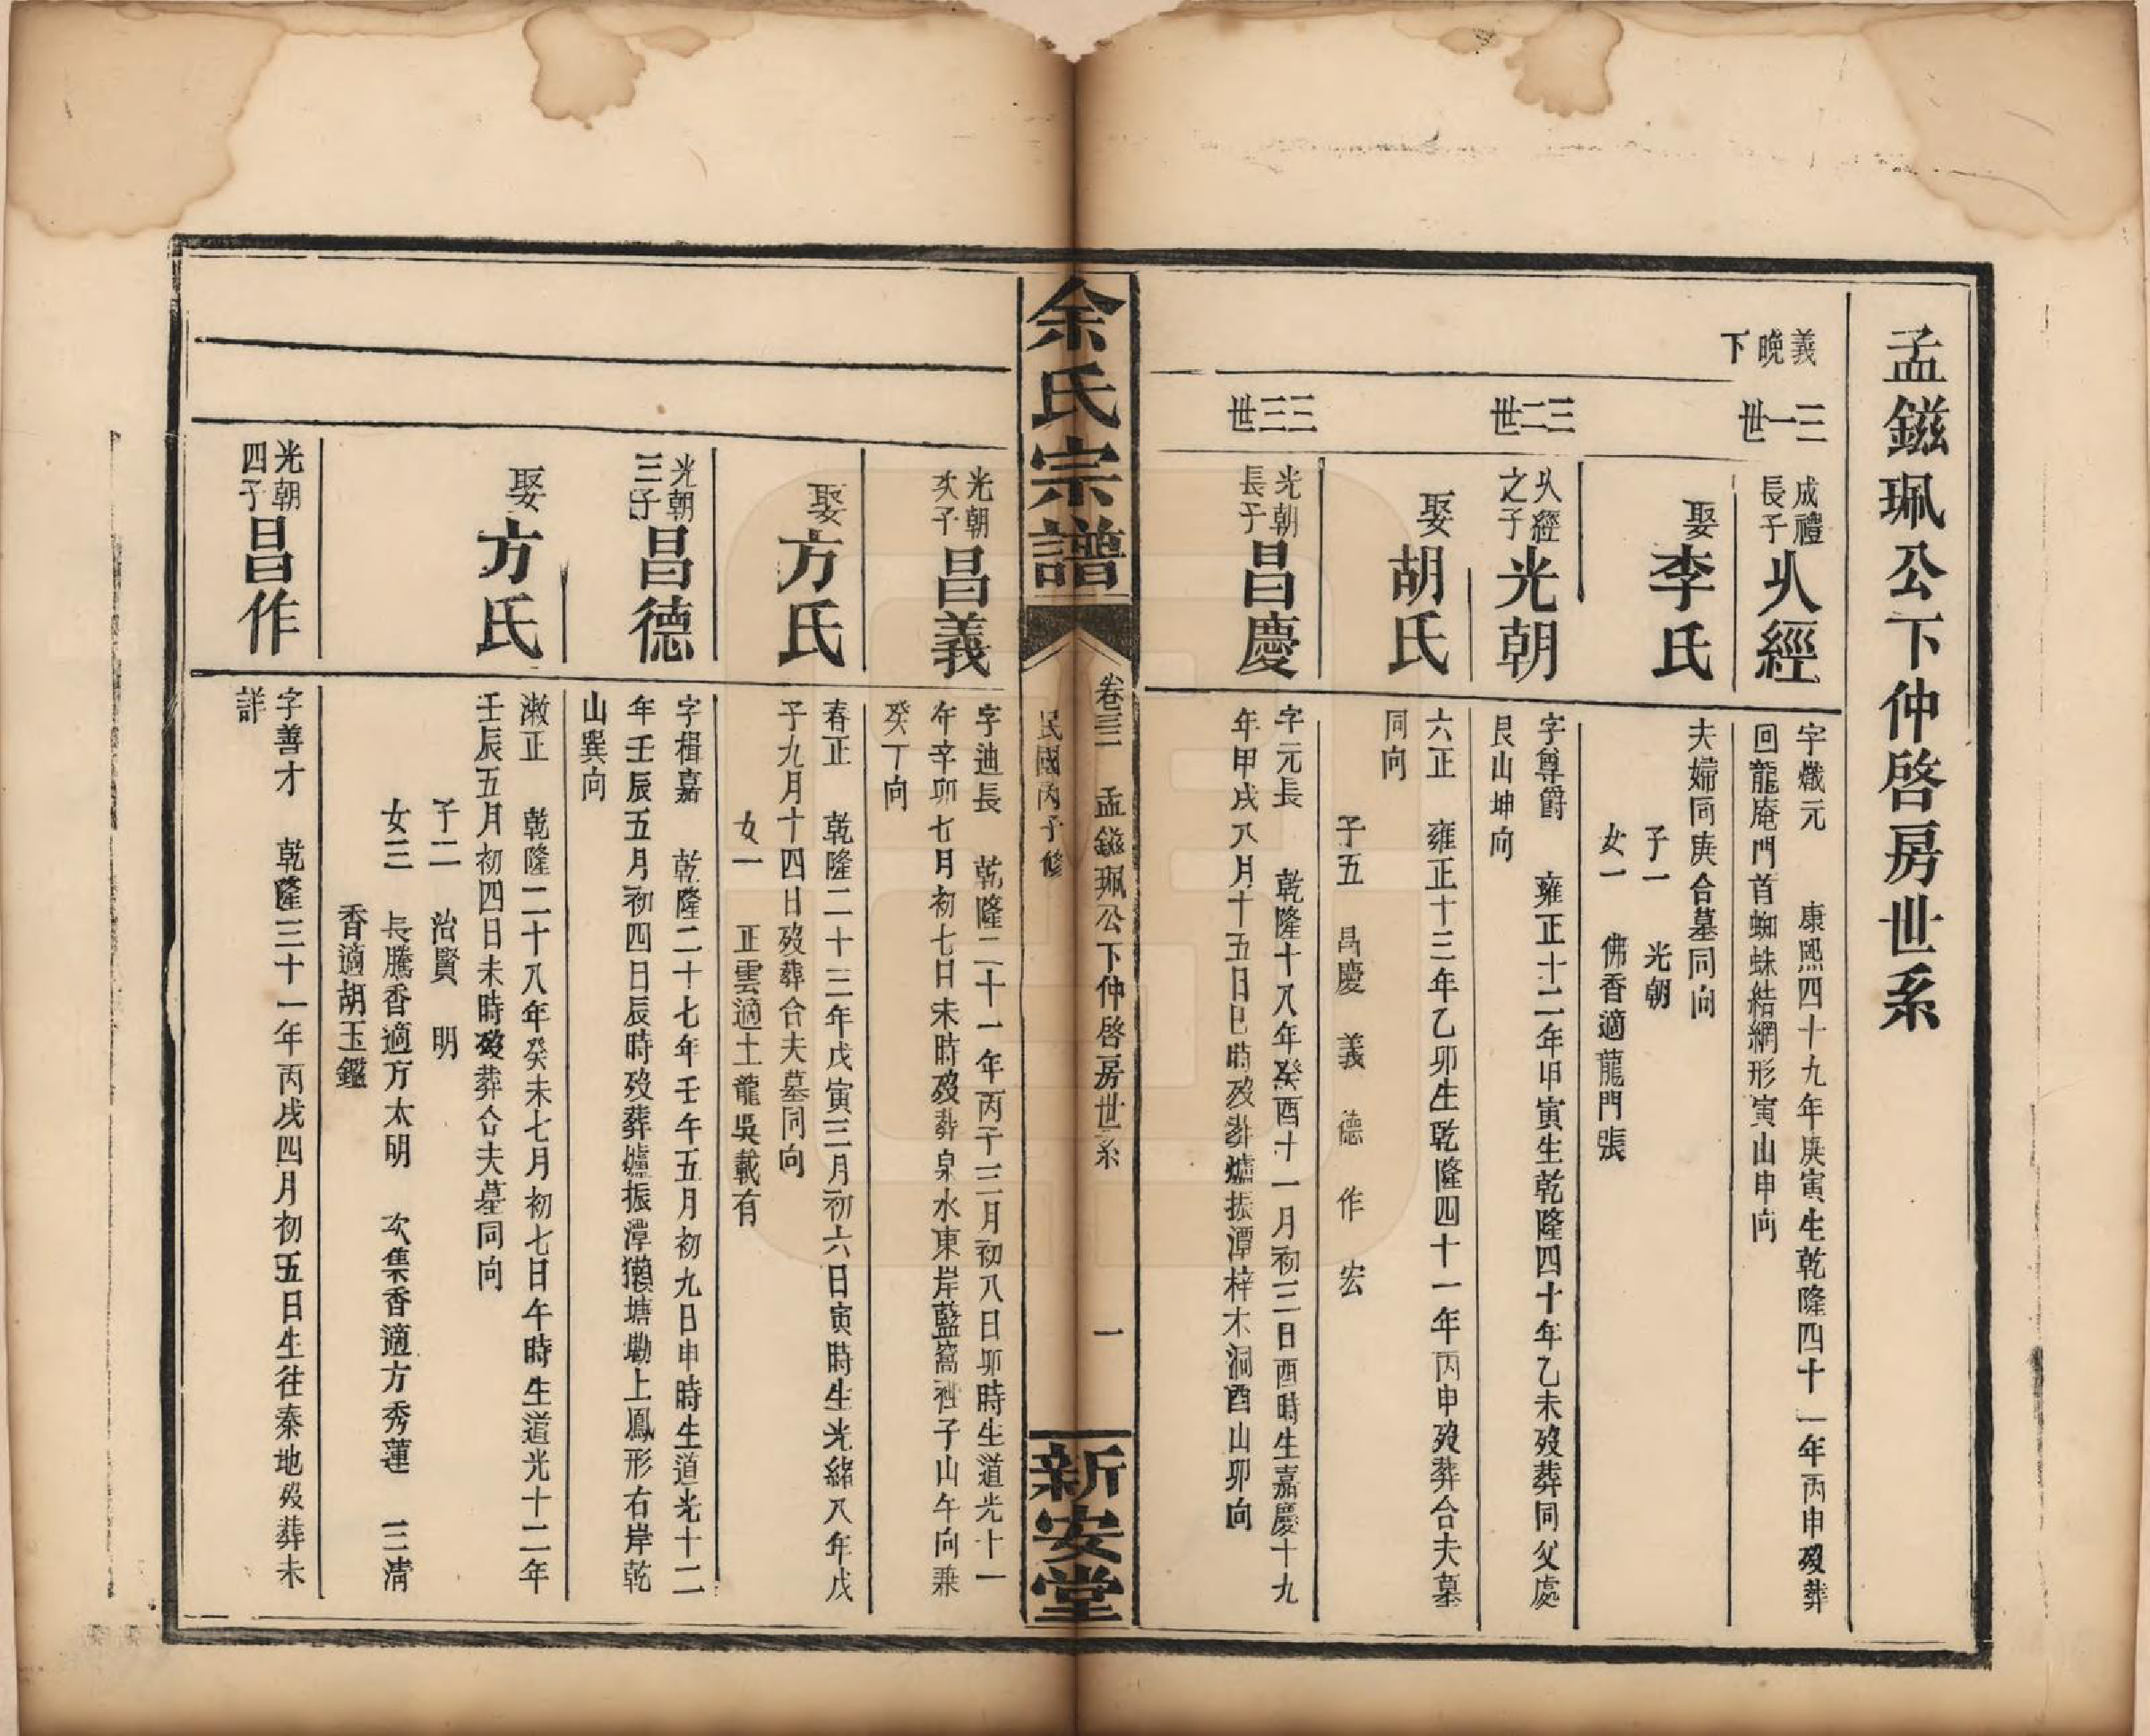 孟鎡珮公下仲啓房世系
義晚下
三一世
成禮長子
𠈌經
字熾元 康熙四十九年庚寅生乾隆四十一年丙申歿葬
回龍庵門首蜘蛛結網形寅山申向
娶李氏
夫婦同庚合墓同向
子一 光朝
女一 佛香適龍門張
三二世
𠈌經之子
光朝
字尊爵 雍正十二年甲寅生乾隆四十年乙未歿葬同父處
艮山坤向
娶胡氏
六正 雍正十三年乙卯生乾隆四十一年丙申歿葬合夫墓
同向
子五 昌慶 義 德 作 宏
三三世
光朝長子
昌慶
字元長 乾隆十八年癸酉十一月初三日酉時生嘉慶十九
年甲戌八月十五日巳時歿葬爐振潭梓木洞酉山卯向
余氏宗譜
卷三 孟鎡珮公下仲啓房世系 一
民國丙子修
新安堂
光朝次子
昌義
字迪長 乾隆二十一年丙子三月初八日卯時生道光十一
年辛卯七月初七日未時歿葬泉水東岸藍窩裡子山午向兼
癸丁向
娶方氏
春正 乾隆二十三年戊寅三月初六日寅時生光緒八年戊
子九月十四日歿葬合夫墓同向
女一 正雲適土龍吳載有
光朝三子
昌德
字楫嘉 乾隆二十七年壬午五月初九日申時生道光十二
年壬辰五月初四日辰時歿葬爐振潭獺塘勘上鳳形右岸乾
山巽向
娶方氏
漱正 乾隆二十八年癸未七月初七日午時生道光十二年
壬辰五月初四日未時歿葬合夫墓同向
子二 治賢 明
女三 長騰香適方太明 次集香適方秀蓮 三清
香適胡玉鑑
光朝四子
昌作
字善才 乾隆三十一年丙戌四月初五日生往秦地歿葬未
詳